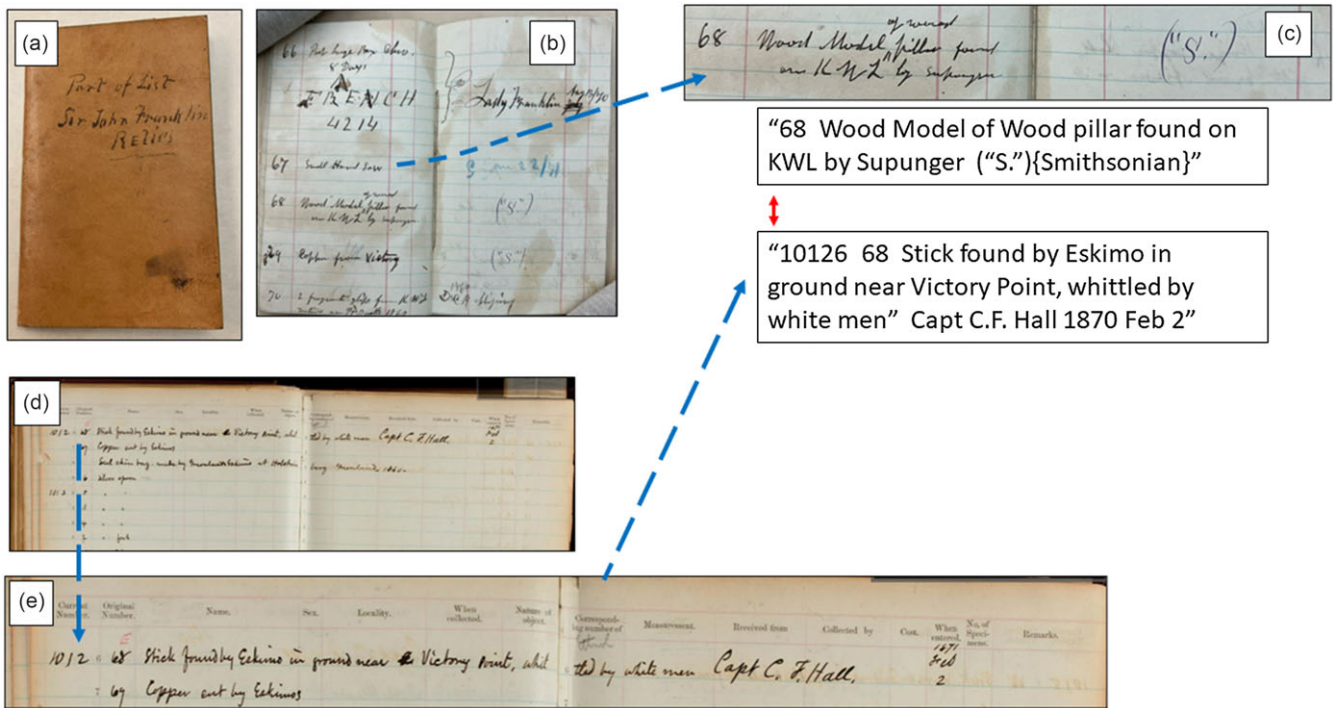 (a)
Part of List
Sir John Franklin
RELICS
(b)
66
8 Days
FRENCH
4214
Lady Franklin
67 Small Hand Saw
68 Wood Model of wood pillar found
on KWL by Supunger
("S.")
69 Copper from Victory
("S.")
70 2 fragments from K.W.L.
(c)
of wood
68 Wood Model pillar found
on K W L by Supunger
("S.")
“68 Wood Model of Wood pillar found on
KWL by Supunger (“S.”){Smithsonian}”
“10126 68 Stick found by Eskimo in
ground near Victory Point, whittled by
white men” Capt C.F. Hall 1870 Feb 2”
(d)
1012 68 Stick found by Eskimo in ground near Victory Point, whit tled by white men Capt C. F. Hall. Feb 2
69 Copper cut by Eskimos
Seal skin bag made by Greenland Eskimo at Holstein borg Greenland 1860.
6 Silver spoon
1013
(e)
Current Number. Original Number. Name. Sex. Locality. When collected. Nature of object. Corresponding number of Measurement. Received from Collected by Cost. When entered. No. of Specimens. Remarks.
1871
1012 6 68 Stick found by Eskimo in ground near Victory Point, whit tled by white men Capt C. F. Hall. Feb
2
7 69 Copper cut by Eskimos